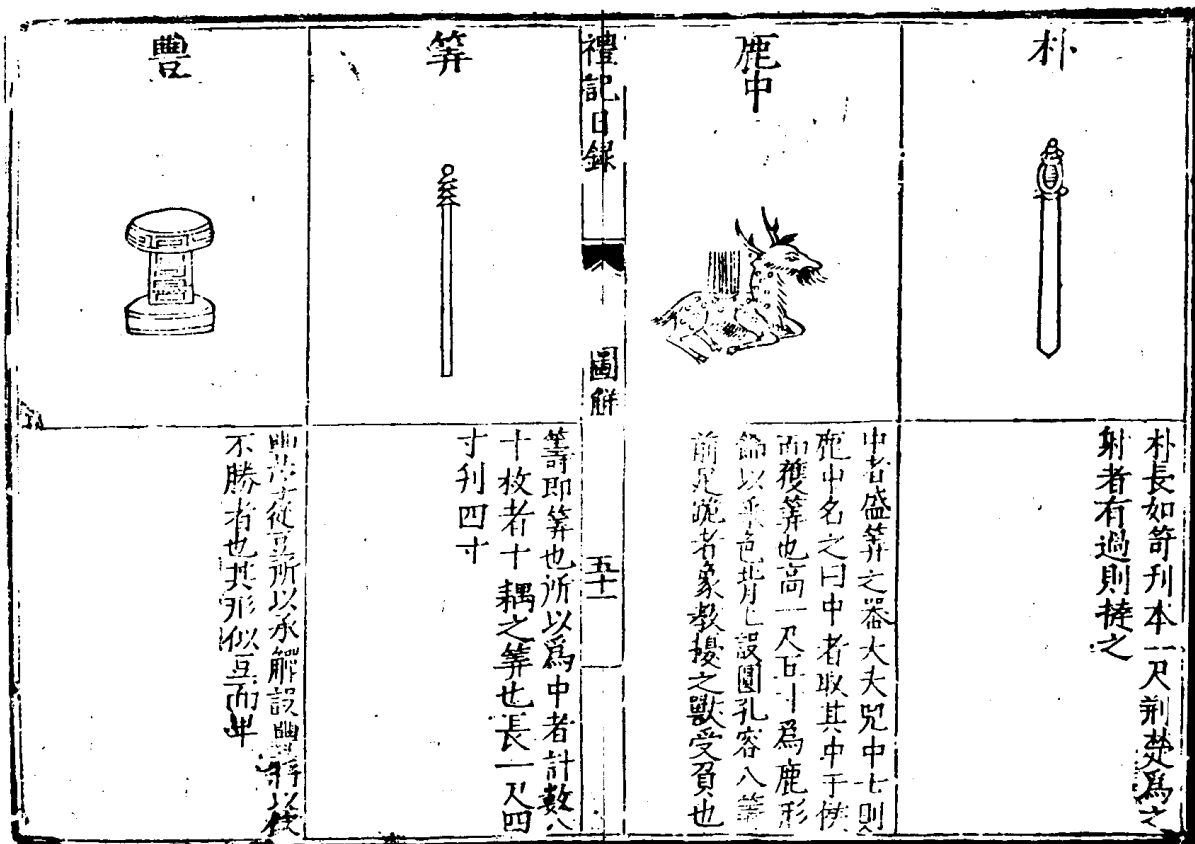 朴
朴長如笴刋本一尺荆楚爲之
射者有過則撻之
鹿中
中者盛筭之器大夫兕中士則
鹿中名之曰中者取其中于侯
而獲筭也高一尺五寸爲鹿形
飾以采色背上設圓孔容八筭
前足跪者象教擾之獸受負也
禮記目録
圖解
五十一
筭
籌即筭也所以爲中者計數八
十枚者十耦之筭也長一尺四
寸刋四寸
豐
豐从豆所以承觶設豐觶以飲
不勝者也其形似豆而卑